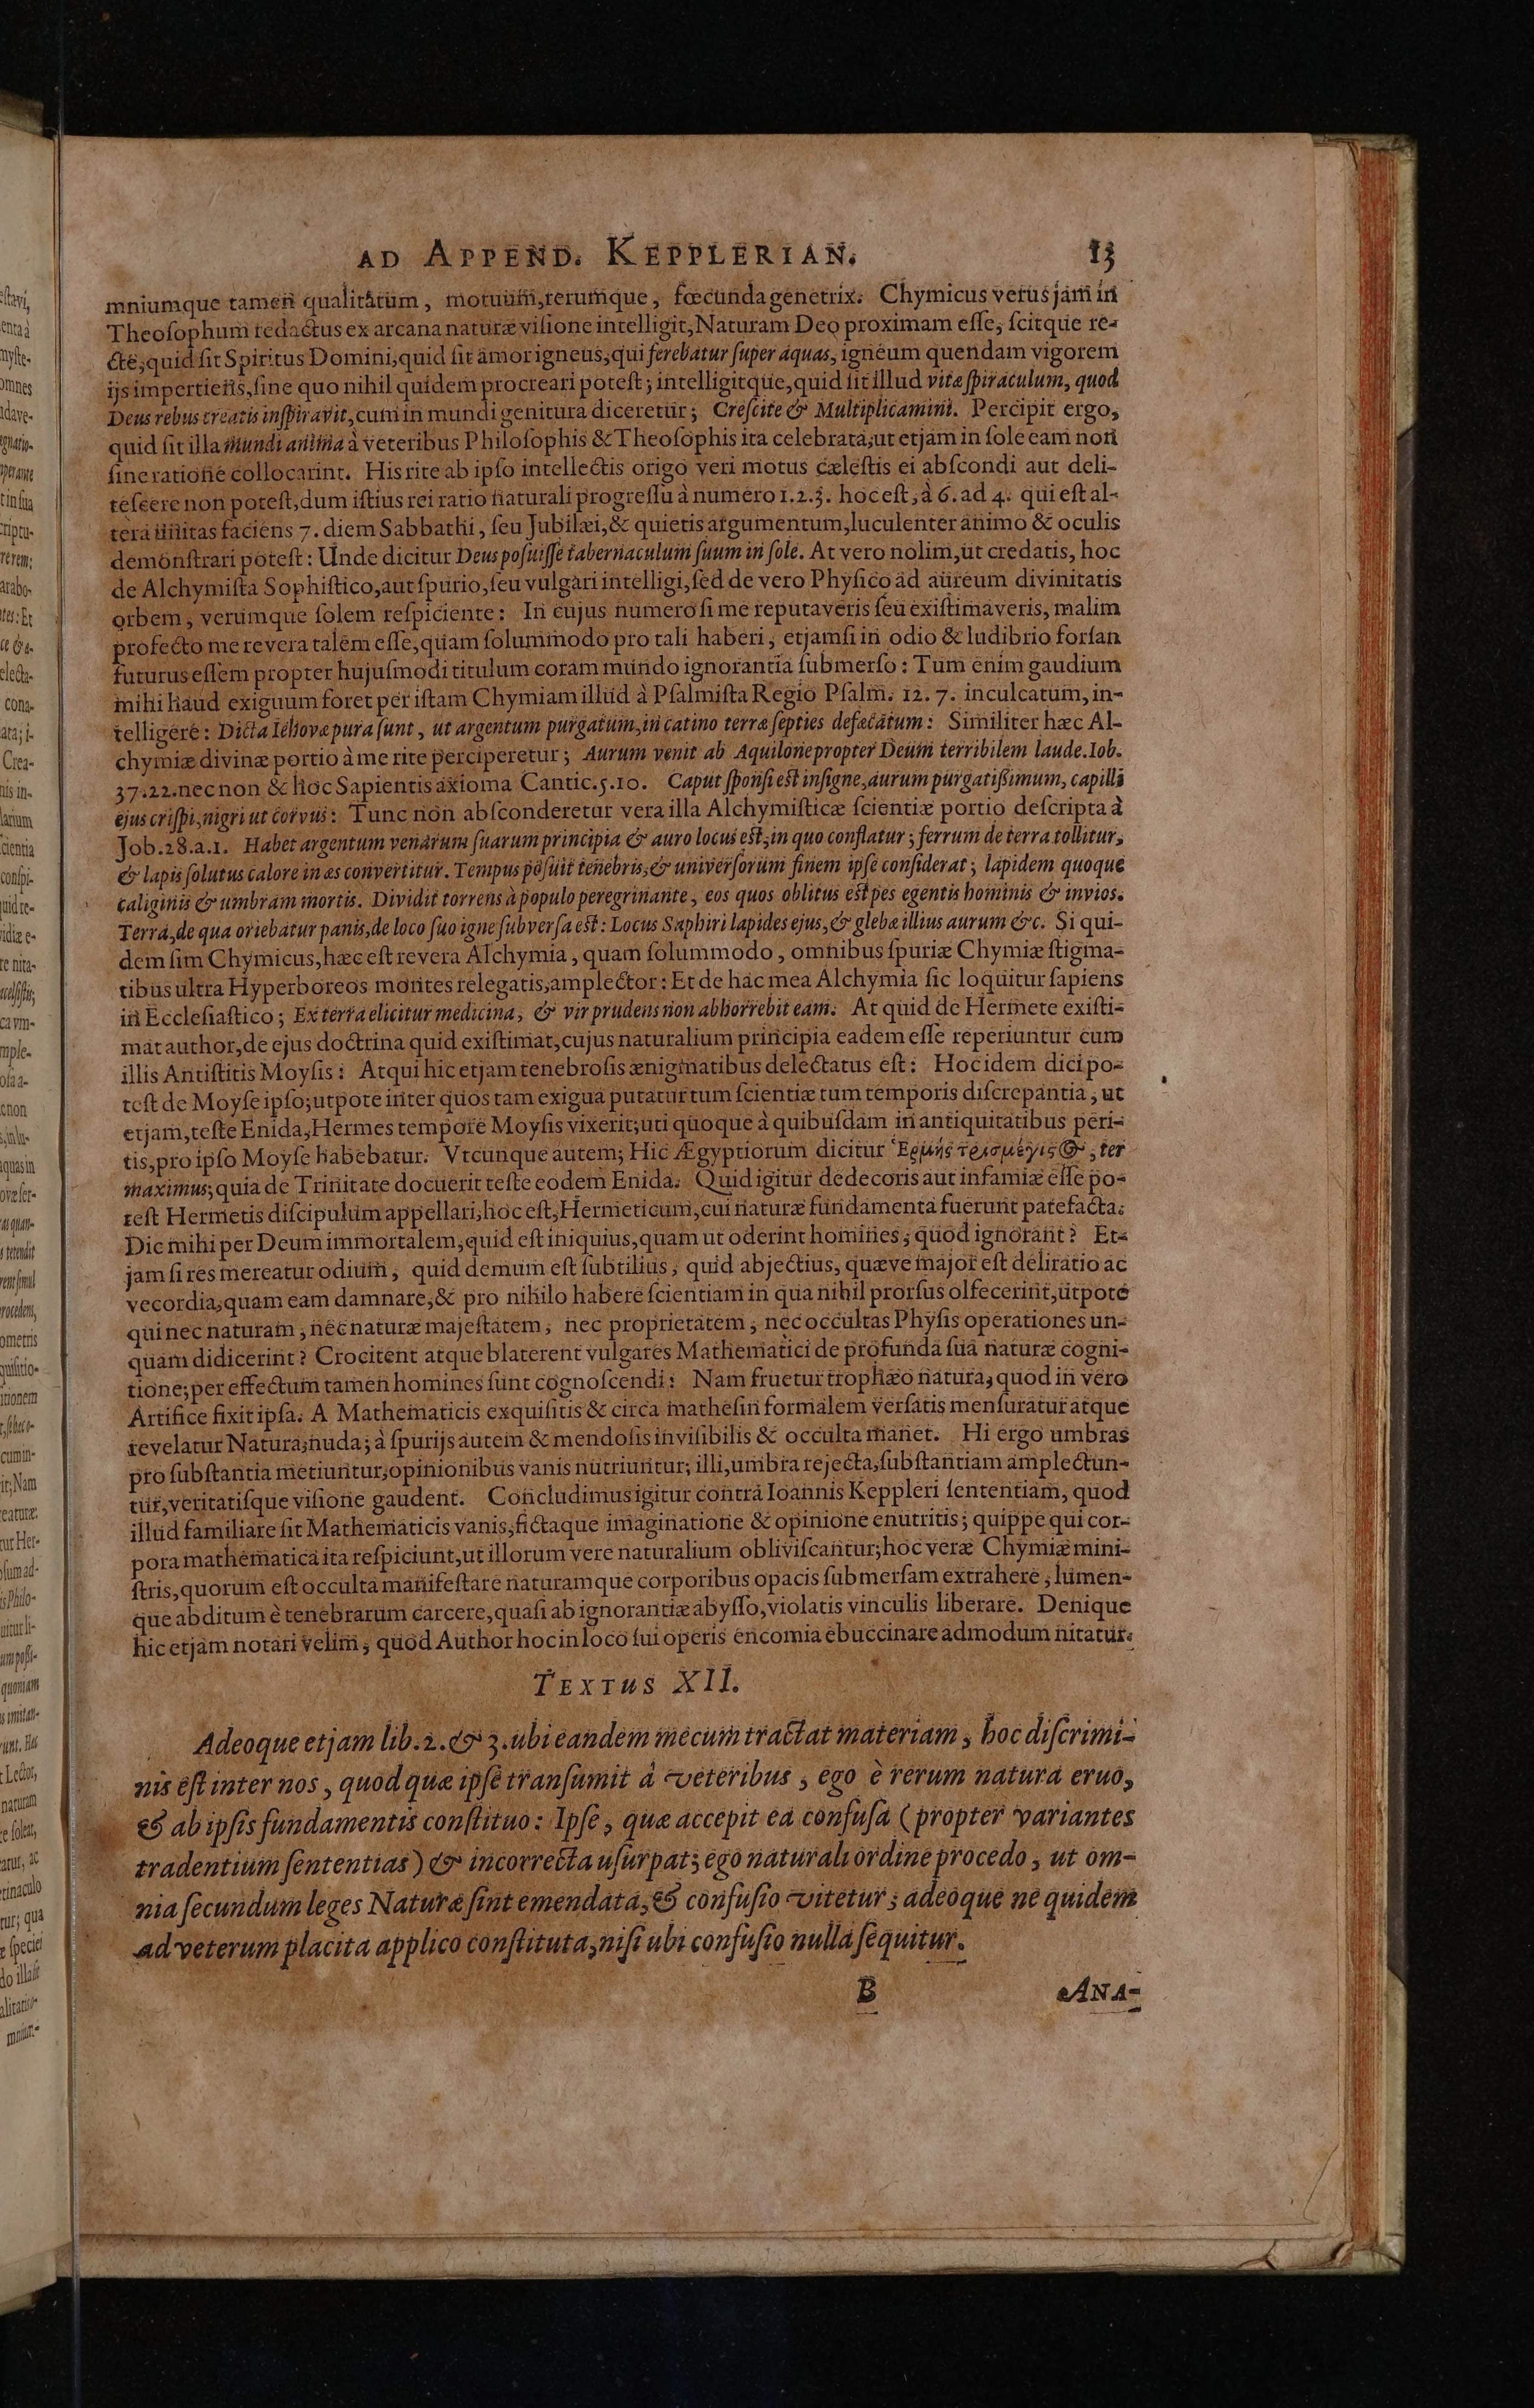 AD APPEND. KEPPLERIAN. 13
mniumque tamen qualitatum, motuum, rerumque, fœcunda genetrix. Chymicus verus jam in
Theoſophum redactus ex arcana naturæ viſione intelligit, Naturam Deo proximam eſſe; ſcitque re-
ctè; quid ſit Spiritus Domini, quid ſit amor igneus, qui ferebatur ſuper aquas, igneum quendam vigorem
ijs impertiens, ſine quo nihil quidem procreari poteſt; intelligitque, quid ſit illud vitæ ſpiraculum, quod
Deus rebus creatis inſpiravit, cum in mundi genitura diceretur; Creſcite & Multiplicamini. Percipit ergo,
quid ſit illa mundi anima à veteribus Philoſophis & Theoſophis ita celebrata, ut etjam in ſole eam non
ſine ratione collocarint. His rite ab ipſo intellectis origo veri motus cæleſtis ei abſcondi aut deli-
teſcere non poteſt, dum iſtius rei ratio naturali progreſſu à numero 1.2.3. hoc eſt, à 6. ad 4. qui eſt al-
tera unitas faciens 7. diem Sabbathi, ſeu Jubilæi, & quietis argumentum, luculenter animo & oculis
demonſtrari poteſt: Unde dicitur Deus poſuiſſe tabernaculum ſuum in ſole. At vero nolim, ut credatis, hoc
de Alchymiſta Sophiſtico, aut ſpurio, ſeu vulgari intelligi, ſed de vero Phyſico ad aureum divinitatis
orbem, verumque ſolem reſpiciente: In cujus numero ſi me reputaveris ſeu exiſtimaveris, malim
profecto me revera talem eſſe, quam ſolummodo pro tali haberi, etjamſi in odio & ludibrio forſan
futurus eſſem propter hujuſmodi titulum coram mundo ignorantia ſubmerſo: Tum enim gaudium
mihi haud exiguum foret per iſtam Chymiam illud à Pſalmiſta Regio Pſalm. 12. 7. inculcatum, in-
telligere: Dicta Iehovæ pura ſunt, ut argentum purgatum, in catino terræ ſepties defæcatum: Similiter hæc Al-
chymiæ divinæ portio à me rite perciperetur; Aurum venit ab Aquilone propter Deum terribilem laude. Iob.
37.22. necnon & hoc Sapientis axioma Cantic. 5.10. Caput ſponſi eſt inſigne, aurum purgatiſſimum, capilli
ejus criſpi, nigri ut corvus: Tunc non abſconderetur vera illa Alchymiſticæ ſcientiæ portio deſcripta à
Job. 28. a. 1. Habet argentum venarum ſuarum principia & auro locus eſt, in quo conflatur; ferrum de terra tollitur,
& lapis ſolutus calore in æs convertitur. Tempus poſuit tenebris, & univerſorum finem ipſe conſiderat; lapidem quoque
caliginis & umbram mortis. Dividit torrens à populo peregrinante, eos quos oblitus eſt pes egentis hominis & invios.
Terra, de qua oriebatur panis, de loco ſuo igne ſubverſa eſt: Locus Saphiri lapides ejus, & glebæ illius aurum &c. Si qui-
dem ſim Chymicus, hæc eſt revera Alchymia, quam ſolummodo, omnibus ſpuriæ Chymiæ ſtigma-
tibus ultra Hyperboreos montes relegatis, amplector: Et de hac mea Alchymia ſic loquitur ſapiens
in Eccleſiaſtico; Ex terra elicitur medicina, & vir prudens non abhorrebit eam. At quid de Hermete exiſti-
mat author, de ejus doctrina quid exiſtimat, cujus naturalium principia eadem eſſe reperiuntur cum
illis Antiſtitis Moyſis: Atqui hic etjam tenebroſis ænigmatibus delectatus eſt: Hoc idem dici po-
teſt de Moyſe ipſo, utpote inter quos tam exigua putatur tum ſcientiæ tum temporis diſcrepantia, ut
etjam, teſte Enida, Hermes tempore Moyſis vixerit; uti quoque à quibuſdam in antiquitatibus peri-
tis, pro ipſo Moyſe habebatur. Vtcunque autem; Hic Ægyptiorum dicitur Ἑρμῆς τρισμέγιστος, ter
maximus, quia de Trinitate docuerit teſte eodem Enida. Quid igitur dedecoris aut infamiæ eſſe po-
teſt Hermetis diſcipulum appellari, hoc eſt, Hermeticum, cui naturæ fundamenta fuerunt patefacta.
Dic mihi per Deum immortalem, quid eſt iniquius, quam ut oderint homines, quod ignorant? Et-
jam ſi res mereatur odium, quid demum eſt ſubtilius, quid abjectius, quæve major eſt deliratio ac
vecordia, quam eam damnare, & pro nihilo habere ſcientiam in qua nihil prorſus olfecerint, utpote
qui nec naturam, nec naturæ majeſtatem, nec proprietatem, nec occultas Phyſis operationes un-
quam didicerint? Crocitent atque blaterent vulgares Mathematici de profunda ſua naturæ cogni-
tione; per effectum tamen homines ſunt cognoſcendi: Nam fruetur trophæo natura, quod in vero
Artifice fixit ipſa. A Mathematicis exquiſitis & circa matheſin formalem verſatis menſuratur atque
revelatur Natura, nuda; à ſpurijs autem & mendoſis inviſibilis & occulta manet. Hi ergo umbras
pro ſubſtantia metiuntur, opinionibus vanis nutriuntur; illi, umbra rejecta, ſubſtantiam amplectun-
tur, veritatiſque viſione gaudent. Concludimus igitur contrà Ioannis Keppleri ſententiam, quod
illud familiare ſit Mathematicis vanis, fictaque imaginatione & opinione enutritis; quippe qui cor-
pora mathematica ita reſpiciunt, ut illorum vere naturalium obliviſcantur, hoc veræ Chymiæ mini-
ſtris, quorum eſt occulta manifeſtare naturamque corporibus opacis ſubmerſam extrahere, lumen-
que abditum è tenebrarum carcere, quaſi ab ignorantiæ abyſſo, violatis vinculis liberare. Denique
hic etjam notari velim, quod Author hoc in loco ſui operis encomia ebuccinare admodum nitatur.
TEXTUS XII.
Adeoque etjam lib. 2. & 3. ubi eandem mecum tractat materiam, hoc diſcrimi-
nis eſt inter nos, quod quæ ipſe tranſumit à veteribus, ego è rerum natura eruo,
& ab ipſis fundamentis conſtituo: Ipſe, quæ accepit ea confuſa (propter variantes
tradentium ſententias) & incorrecta uſurpat; ego naturali ordine procedo, ut om-
nia ſecundum leges Naturæ ſint emendata, & confuſio vitetur; adeoque ne quidem
ad veterum placita applico conſtituta, niſi ubi confuſio nulla ſequitur.
B ANA-